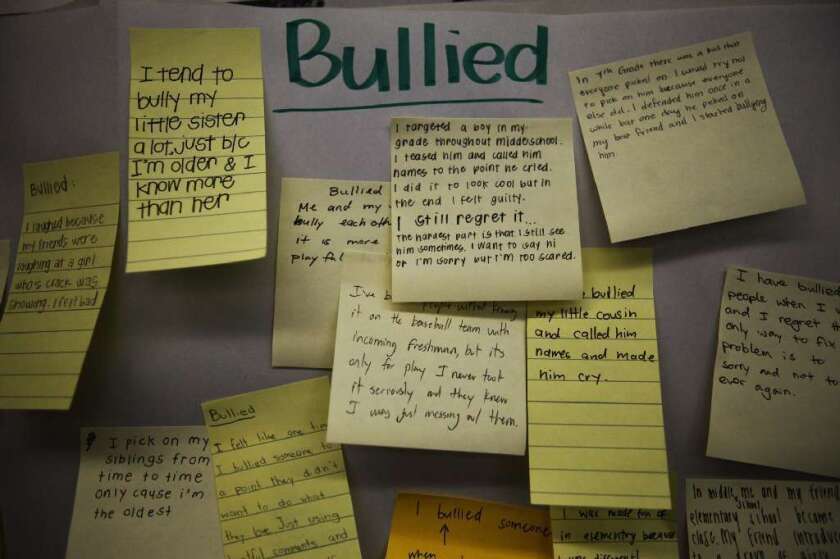 Bullied
I tend to
bully my
little sister
a lot. just b/c
I'm older & I
know more
than her
Bullied:
I laughed because
my friends were
laughing at a girl
who's crack was
showing. I feel bad
Bullied
Me and my
bully each oth
it is more
playful
I targeted a boy in my
grade throughout middleschool.
I teased him and called him
names to the point he cried.
I did it to look cool but in
the end I felt guilty.
I still regret it...
The hardest part is that I still see
him sometimes. I want to say hi
or I'm sorry but I'm too scared.
In 7th Grade there was a kid that
everyone picked on. I would try not
to pick on him because everyone
else did. I defended him once in a
while but one day he picked on
my best friend and I started bullying
him.
I've b
it on the baseball team with
incoming freshman, but its
only for play I never took
it seriously and they knew
I was just messing w/ them.
bullied
my little cousin
and called him
names and made
him cry.
I have bullied
people when I w
and I regret th
only way to fix
problem is to
sorry and not to
ever again.
I pick on my
siblings from
time to time
only cause i'm
the oldest
Bullied
I felt like one tim
I bullied someone to
a point they didn't
want to do what
they be. Just using
comments and
I bullied someone
when
I was made fun of
in elementary because
I was different
In middle school, me and my friend
elementary school became
class. My friend introdu